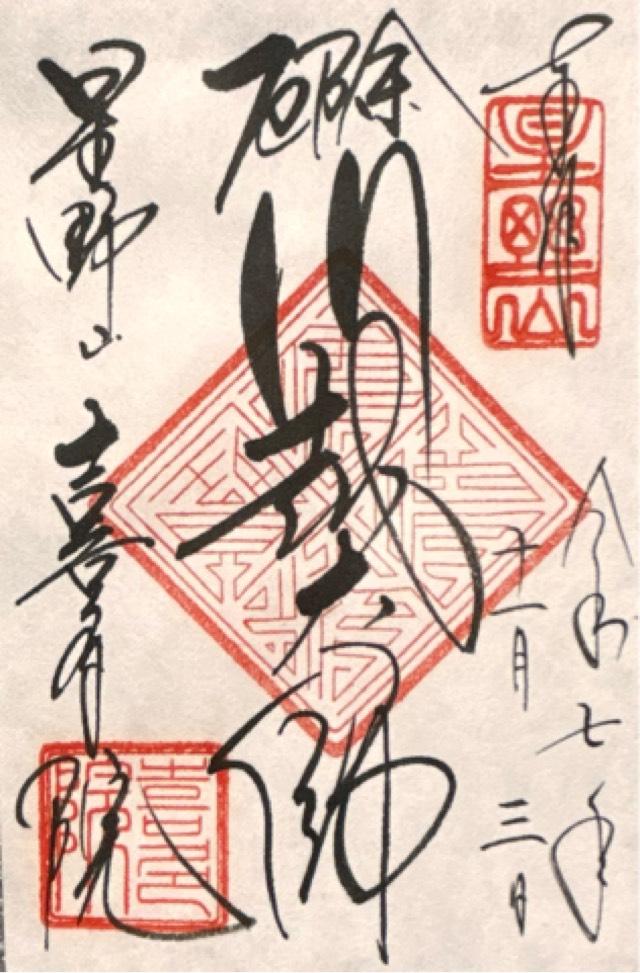 奉拝
令和七年
十一月三日
厄除
川越大師
星野山 喜多院